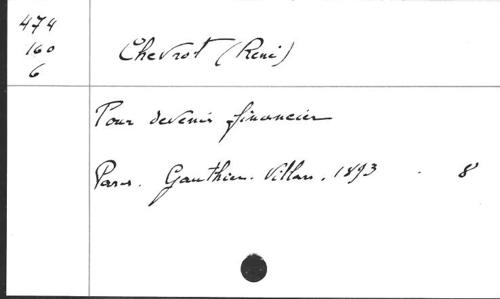 474
160
6
Chevrot (René)
Pour devenir financier
Paris. Gauthier. Villars. 1893 . 8